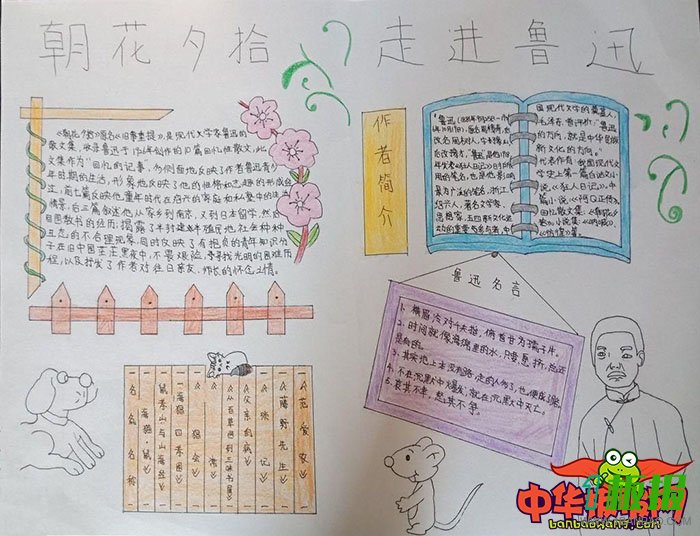 朝花夕拾 走进鲁迅
《朝花夕拾》原名《旧事重提》,是现代文学家鲁迅的
散文集,收录鲁迅于1926年创作的10篇回忆性散文,此
文集作为"回忆的记事,多侧面地反映了作者鲁迅青少
年时期的生活,形象地反映了他的性格和志趣的形成经
过,前七篇反映他童年时代在绍兴的家庭和私塾中的生活
情景,后三篇叙述他从家乡到南京,又到日本留学,然后
回国教书的经历;揭露了半封建半殖民地,社会种种
丑恶的不合理现象,同时反映了有抱负的青年知识分
子在旧中国茫茫黑夜中,不畏艰险,寻找光明的困难历
程,以及抒发了作者对往日亲友,师长的怀念之情。
作者简介
改名周树人,字豫山,
后改豫才,"鲁迅"是他1918
年发表《狂人日记》时所用
的笔名,也是他影响
最为广泛的笔名,浙江
绍兴人,著名文学家,
思想家,五四新文化运
动的重要参与者,中
国现代文学的奠基人,
毛泽东曾评价:"鲁迅
的方向,就是中华民族
新文化的方向。"
代表作有:我国现代文
学史上第一篇白话文小
说《狂人日记》,中
篇小说《阿Q正传》,
回忆散文集:《朝花夕
拾》小说集:《呐喊》,
《彷徨》等
鲁迅名言
1、横眉冷对千夫指,俯首甘为孺子牛。
2、时间就像海绵里的水,只要愿挤,总还
是有的。
3、其实地上本没有路,走的人多了,也便成了路。
4、不在沉默中爆发,就在沉默中灭亡。
5、哀其不幸,怒其不争。
《范爱农》
《藤野先生》
《琐记》
《父亲的病》
《从百草园到三味书屋》
《无常》
《五猖会》
《二十四孝图》
《阿长与山海经》
《狗·猫·鼠》
中华报报网
banbaowang.com